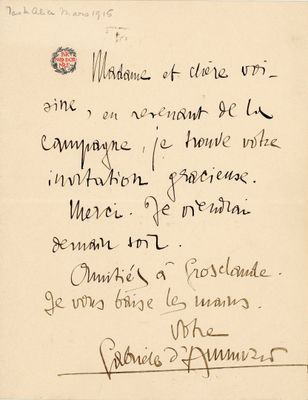 Mars 1915
Madame et chère voi-
sine, en revenant de la
campagne, je trouve votre
invitation gracieuse.
Merci. Je viendrai
demain soir.
Amitiés à Grosclaude.
Je vous baise les mains.
Votre
Gabriele d'Annunzio